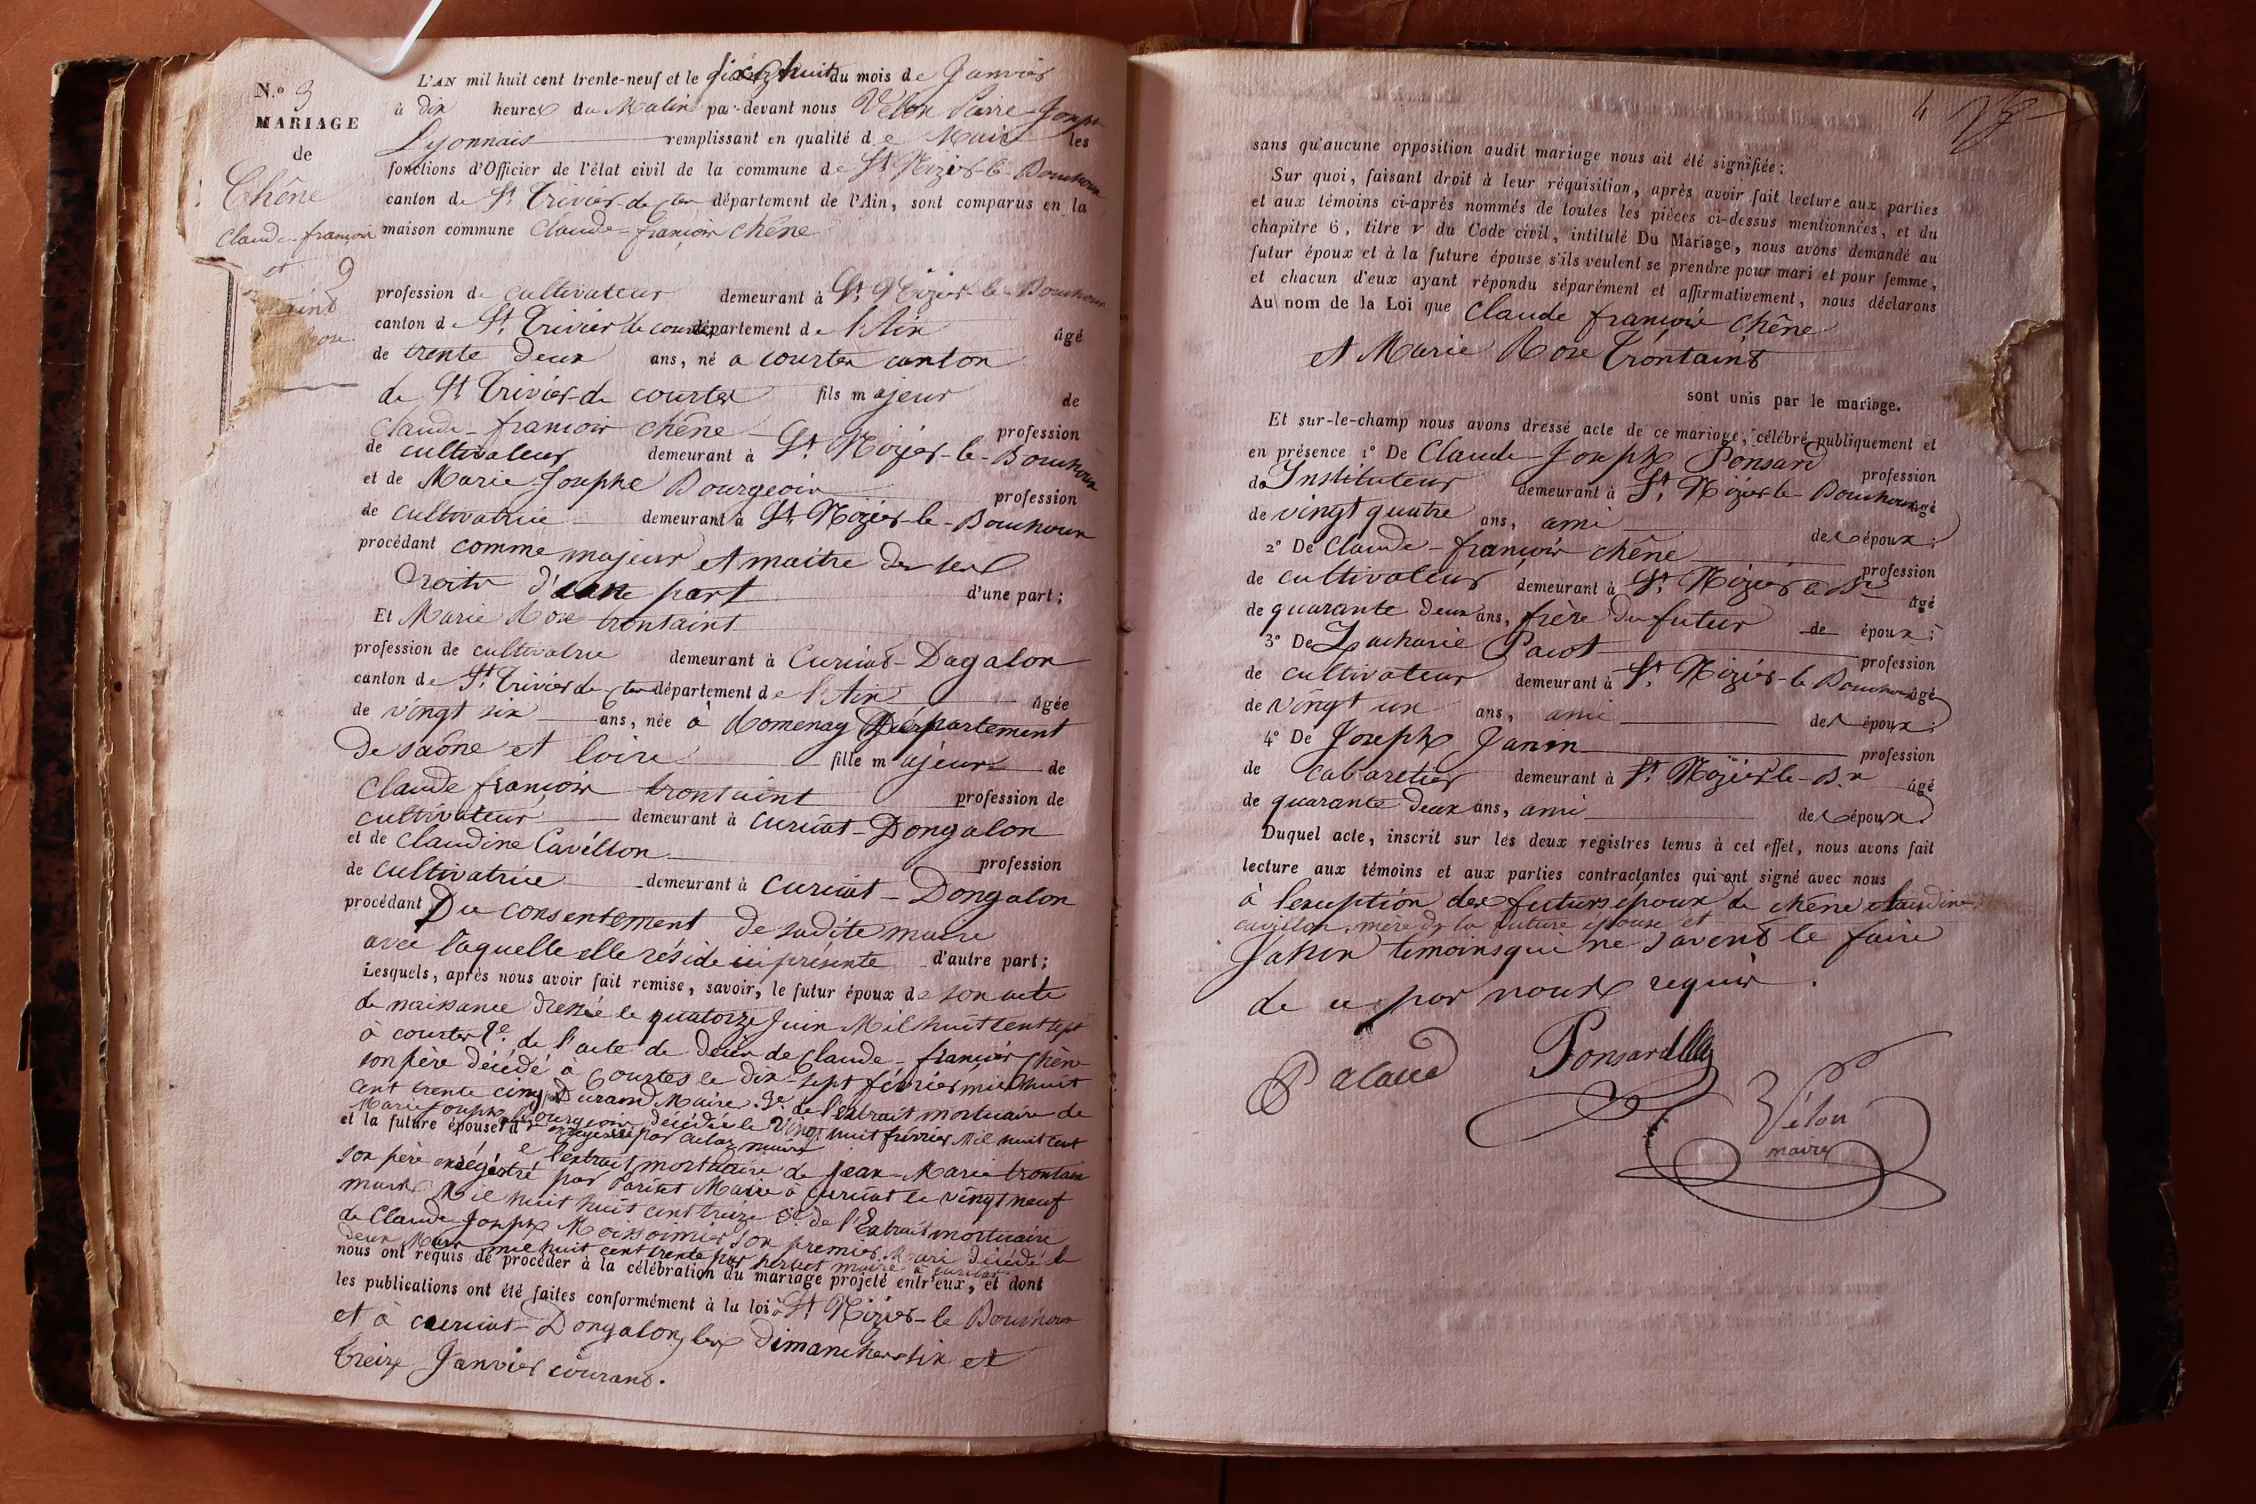 N.° 3
MARIAGE
de
Chêne
Claude françois
et
L'AN mil huit cent trente-neuf et le dix huit du mois de Janvier
à dix heures du Matin par-devant nous Vélon Pierre Joseph
Lyonnais remplissant en qualité de Maire les
fonctions d'Officier de l'état civil de la commune de St Nizier-le-Bouchoux
canton de St Trivier-de-Ctes département de l'Ain, sont comparus en la
maison commune Claude-françois chêne
profession de cultivateur demeurant à St. Nizier-le-Bouchoux
canton de St. Trivier de courtes département de l'Ain âgé
de trente deux ans, né a courtes canton
de St Trivier-de courtes fils majeur de
Claude-françois chêne profession
de cultivateur demeurant à St. Nizier-le-Bouchoux
et de Marie-Josephe Bourgeois profession
de cultivatrice demeurant à St. Nizier-le-Bouchoux
procédant comme majeur et maitre de ses
droits d'une part d'une part;
Et Marie Rose trontaint
profession de cultivatrice demeurant à Curciat-Dagalon
canton de St. Trivier de Ctes département de l'Ain âgée
de vingt six ans, née à Romenay Département
de saône et loire fille majeure de
Claude françois trontaint profession de
cultivateur demeurant à curciat-Dongalon
et de claudine Cavillon profession
de cultivatrice demeurant à curciat-Dongalon
procédant Du consentement de sadite mère
avec laquelle elle réside ici présente d'autre part;
Lesquels, après nous avoir fait remise, savoir, le futur époux de son acte
de naissance dressé le quatorze Juin Mil huit cent sept
à courtes 2e. de l'acte de décès de Claude-françois chêne
son père décédé à Courtes le dix-sept février mil huit
cent trente cinq Durand Maire. 3e. de l'extrait mortuaire de
Marie Joseph Bourgeois décédée le vingt huit février Mil huit cent
et la future épouse
l'extrait mortuaire de Jean-Marie trontain
son père enrégistré par Pariat Maire à Curciat le vingt neuf
mars Mil huit huit cent treize de l'Extrait mortuaire
de Claude Joseph Moissonnier son premier Mari décédé le
deux Mars mil huit cent trente par perret maire à curciat
nous ont requis de procéder à la célébration du mariage projeté entr'eux, et dont
les publications ont été faites conformément à la loi à St Nizier-le Bouchoux
et à curciat-Dongalon, les dimanches six et
treize Janvier courant.
4
sans qu'aucune opposition audit mariage nous ait été signifiée;
Sur quoi, faisant droit à leur réquisition, après avoir fait lecture aux parties
et aux témoins ci-après nommés de toutes les pièces ci-dessus mentionnées, et du
chapitre 6, titre v du Code civil, intitulé Du Mariage, nous avons demandé au
futur époux et à la future épouse s'ils veulent se prendre pour mari et pour femme,
et chacun d'eux ayant répondu séparément et affirmativement, nous déclarons
Au nom de la Loi que Claude françois chêne
et Marie Rose Trontaint
sont unis par le mariage.
Et sur-le-champ nous avons dressé acte de ce mariage, célébré publiquement et
en présence 1° De Claude-Joseph Ponsard profession
de Instituteur demeurant à St. Nizier le-Bouchoux âgé
de vingt quatre ans, ami des époux;
2° De Claude-françois chêne profession
de cultivateur demeurant à St. Nizier le Bx âgé
de quarante deux ans, frère du futur de époux;
3° De Zacharie Pacot profession
de cultivateur demeurant à St. Nizier-le Bouchoux âgé
de vingt un ans, ami des époux;
4° De Joseph Janin profession
de cabaretier demeurant à St. Nizier le-B.x âgé
de quarante deux ans, ami des époux.
Duquel acte, inscrit sur les deux registres tenus à cet effet, nous avons fait
lecture aux témoins et aux parties contractantes qui ont signé avec nous
à l'exception des futurs époux de chêne claudine
cavillon, mère de la future épouse et
Janin temoins qui ne savent le faire
de ce par nous requis.
Ponsard
Vélon
maire